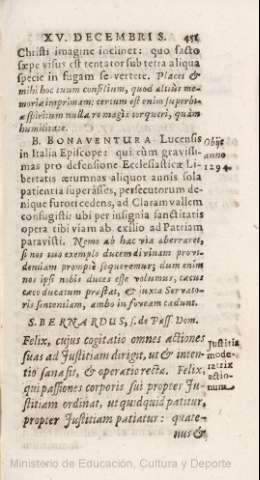 XV. DECEMBRIS. 451
Christi imagine inclinet: quo facto
sæpe visus est tentator sub terra aliqua
specie in fugam se vertere. Placet &
mihi hoc tuum consilium, quod altiùs me-
moriæ imprimam: certum est enim superbiæ
spiritum nulla re magis torqueri, quàm
humilitate.
B. BONAVENTURA Lucensis
in Italia Episcopus qui cùm gravissi-
mas pro defensione Ecclesiasticæ Li-
bertatis ærumnas aliquot annis sola
patientia superâsses, persecutorum de-
nique furori cedens, ad Claram vallem
confugisti: ubi per insignia sanctitatis
opera tibi viam ab exilio ad Patriam
paravisti. Nemo ab hac via aberraret,
si nos tuo exemplo ducem divinam provi-
dentiam promptè sequeremur; dum enim
nos ipsi nobis duces esse volumus, cæcus
cæco ducatum præstat, & juxta Servato-
ris sententiam, ambo in foveam cadunt.
Obijt
anno
1294.
S. BERNARDUS, s. de Pass. Dom.
Felix, cujus cogitatio omnes actiones
suas ad Justitiam dirigit, ut & inten-
tio sana sit, & operatio recta. Felix,
qui passiones corporis sui propter Ju-
stitiam ordinat, ut quidquid patitur,
propter Justitiam patiatur: quate-
nus &
Justitia
mode-
ratrix
actio-
num.
Ministerio de Educación, Cultura y Deporte